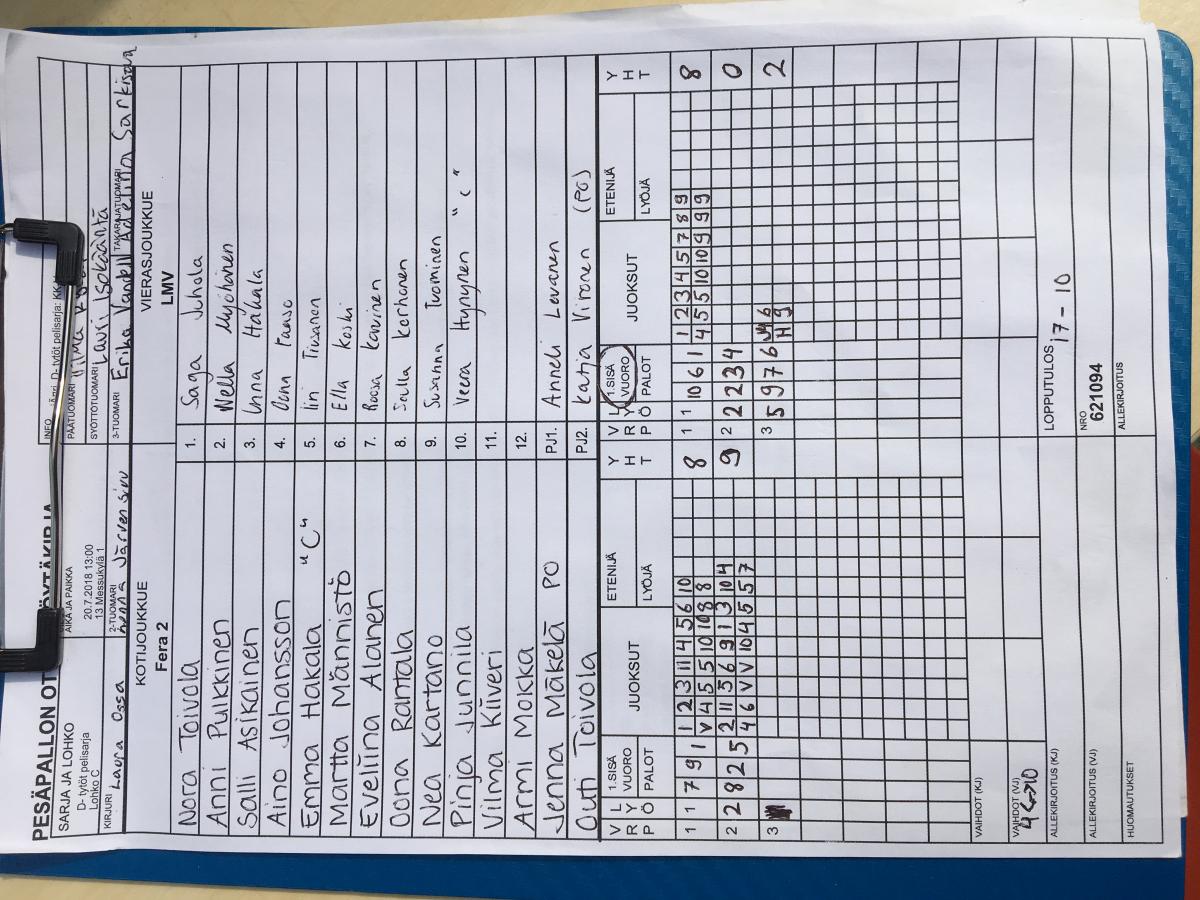 PESÄPALLON OT
SARJA JA LOHKO
D- tytöt pelisarja
Lohko C
AIKA JA PAIKKA
20.7.2018 13:00
13 Messukylä 1
INFO
D- tytöt pelisarja:
PÄÄTUOMARI
SYÖTTÖTUOMARI Lauri Isokääntä
KIRJURI Laura Ossa
2-TUOMARI Järvensivu
3-TUOMARI Erika
TAKARAJATUOMARI Adelina Sarkisova
KOTIJOUKKUE
Fera 2
VIERASJOUKKUE
LMV
Nora Toivola 1. Saga Juhola
Anni Pulkkinen 2. Nella Myöhänen
Salli Asikainen 3. Inna Hakala
Aino Johansson 4. Oona
Emma Hakala "C" 5. Iin
Martta Männistö 6. Ella Koski
Eveliina Alanen 7. Roosa
Oona Rantala 8. Salla Korhonen
Nea Kartano 9. Susanna Tuominen
Pinja Junnila 10. Veera Hynynen "C"
Vilma Kiiveri 11.
Armi Mokka 12.
Jenna Mäkelä PO PJ1. Anneli Levanen
Outi Toivola PJ2. Katja Vironen (PO)
V R P L Y Ö 1.SISÄ VUORO PALOT JUOKSUT ETENIJÄ LYÖJÄ Y H T
V R P L Y Ö 1.SISÄ VUORO PALOT JUOKSUT ETENIJÄ LYÖJÄ Y H T
1 1 7 9 1 1 2 3 11 4 5 6 10 8 1 1 10 6 1 1 2 3 4 5 7 8 9 8
V 4 5 5 10 10 8 8 4 5 5 10 10 9 9 9
2 2 8 2 5 2 11 5 6 9 1 3 10 4 9 2 2 2 3 4 0
4 6 V V 10 4 5 5 7
3 3 5 9 7 6 6 2
H 9
VAIHDOT (KJ)
VAIHDOT (VJ)
4<->10
LOPPUTULOS 17 - 10
ALLEKIRJOITUS (KJ)
NRO
621094
ALLEKIRJOITUS (VJ)
ALLEKIRJOITUS
HUOMAUTUKSET